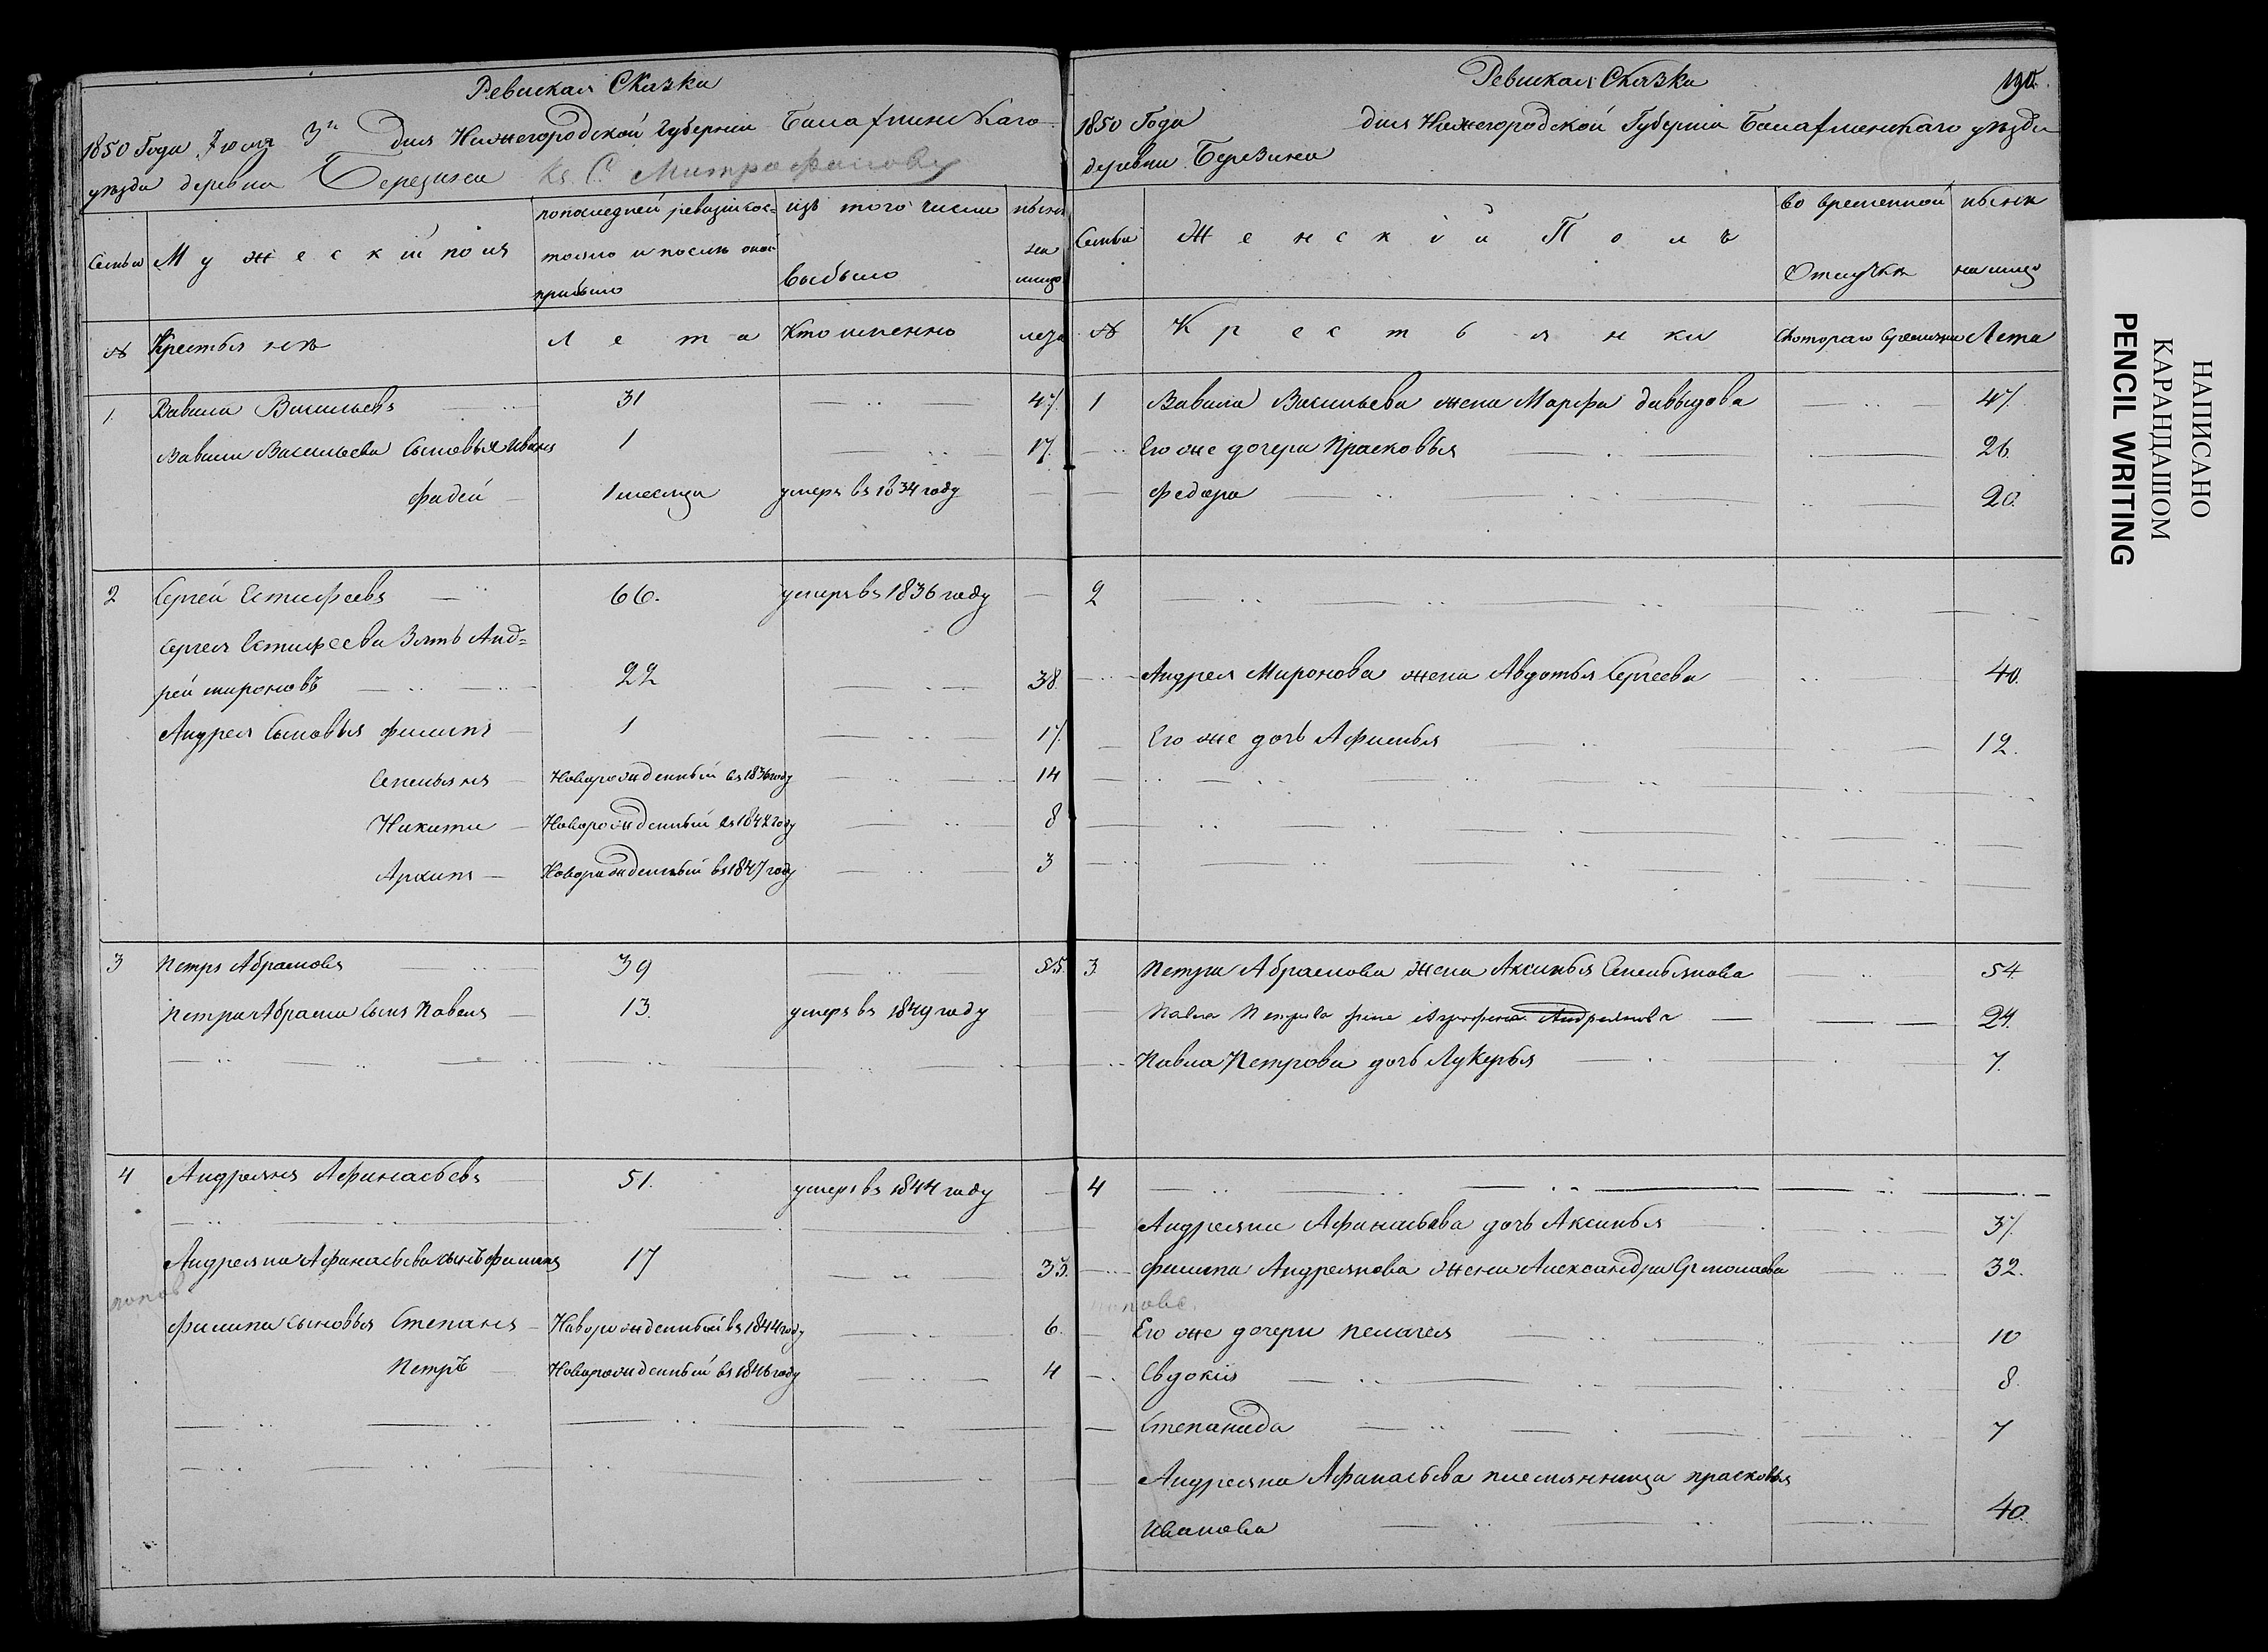 Ревиская Сказка
1850 Года Июля 3го Дня Нижегородской Губернии Балахнинскаго
уезда деревни Березина къ С. Митрофанову
Семьи
Мужескiй полъ
по последней ревизiи сос=
тояло и после оной
прибыло
изъ того числа
выбыло
ныне
на
лицо
№
Крестьянъ
Лета
Кто именно
лета
1. Вавила Васильевъ 31 47.
Вавилы Васильева сыновья Иванъ 1 17.
Фадей 1 месяца умеръ въ 1834 году
2 Сергей Естифеевъ 66. умеръ въ 1836 году
Сергея Естифеева Зять Анд=
рей мироновъ 22 38.
Андрея сыновья филипъ 1 17.
Емельянъ Новорожденный въ 1836 году 14
Никита Новорожденный въ 1842 году 8
Архипъ Новорожденный въ 1847 году 3
3 Петръ Абрамовъ 39 55.
Петра Абрама сынъ Павелъ 13. умеръ въ 1849 году
4 Андреянъ Афанасьевъ 51. умеръ въ 1844 году
Андреяна Афанасьева сынъ филипъ 17 33.
попов
Филипа сыновья Степанъ Новорожденный въ 1844 году 6.
Петръ Новорожденный въ 1846 году 4
Ревиская Сказка
190.
1850 Года дня Нижегородской Губернiи Балахнинскаго уезда
деревни Березина
Семьи
Женскiй Полъ
во временной
Отлучке
ныне
на лицо
№
Крестьянки
с котораго времени
Лета
1 Вавила Васильева жена Марфа давыдова 47.
Его же дочери Прасковья 26
Федора 20.
2
Андрея Миронова жена Авдотья Сергеева 40.
Его же дочь Афимья 12.
3. Петра Абрамова жена Аксинья Емельянова 54.
Павла Петрова жена Аграфена Андреянова 29.
Павла Петрова дочь Лукерья 7.
4
Андреяна Афанасьева дочь Аксинья 37.
Филипа Андреянова жена Александра Ермолаева 32.
попова.
Его же дочери пелагея 10
Евдокiя 8.
Степанида 7
Андреяна Афанасьева племянница прасковья
Иванова 40.
НАПИСАНО
КАРАНДАШОМ
PENCIL WRITING